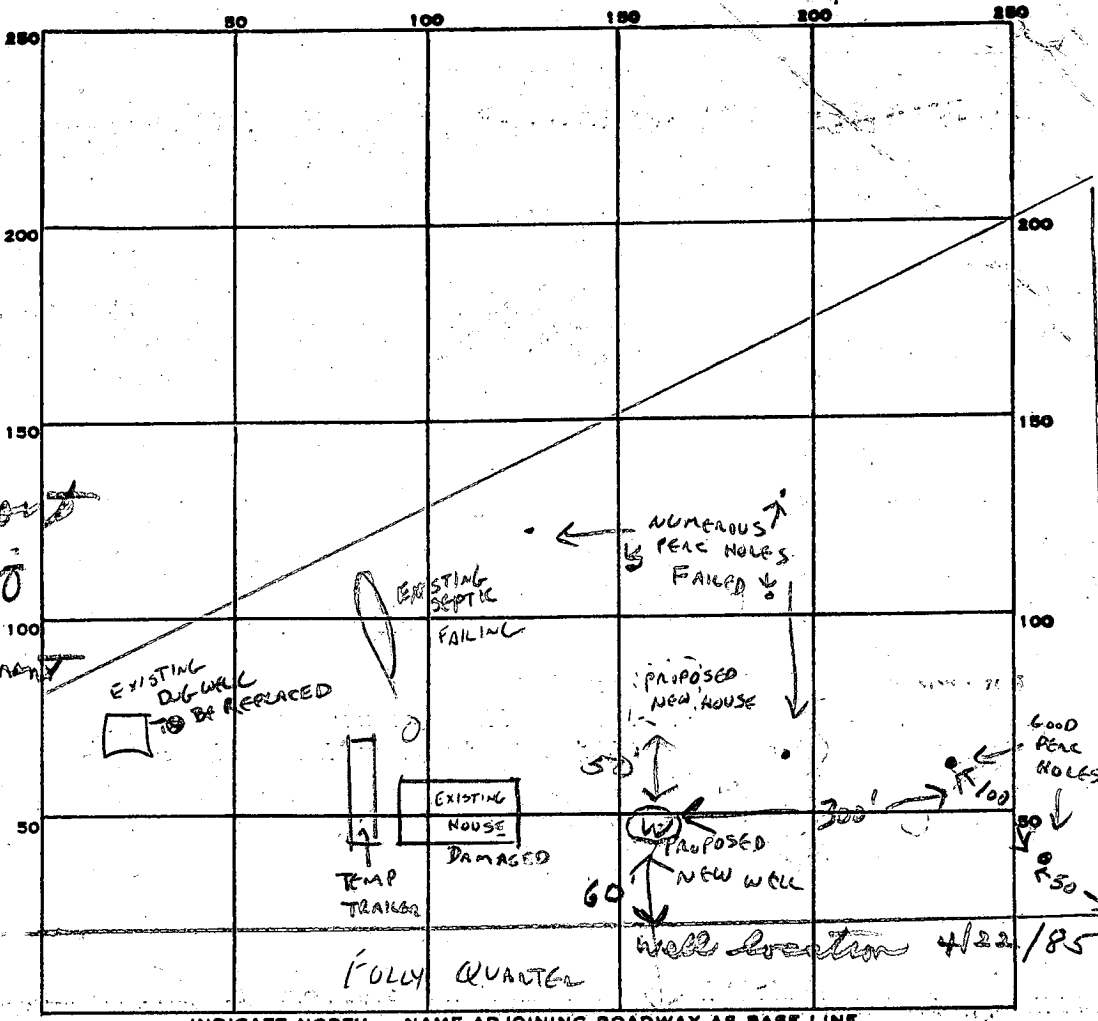 50 100 150 200 250
250
200 200
150 150
NUMEROUS
PERC HOLES
FAILED
EXISTING
SEPTIC
FAILING
100 100
EXISTING
DUG WELL
BE REPLACED
PROPOSED
NEW HOUSE
GOOD
PERC
HOLES
50'
100
300'
50 50
EXISTING
HOUSE
DAMAGED
W
PROPOSED
NEW WELL
60'
50
TEMP
TRAILER
Well location 4/22/85
FOLLY QUARTER
INDICATE NORTH NAME ADJOINING ROADWAY AS BASE LINE